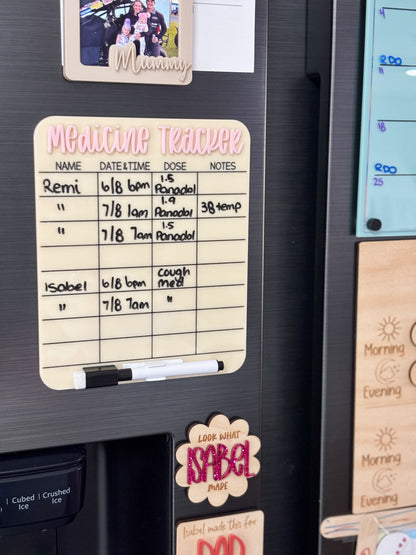 Mummy
MEDICINE TRACKER
NAME DATE&TIME DOSE NOTES
Remi 6/8 6pm 1.5 Panadol
" 7/8 1am 1.9 Panadol 38 temp
" 7/8 7am 1.5 Panadol
Isabel 6/8 6pm cough med
" 7/8 7am "
4
RDO
11
RDO
18
RDO
25
Morning
Evening
Morning
Evening
Cubed Ice
Crushed Ice
LOOK WHAT
ISABEL
MADE
Isabel made this for
DAD